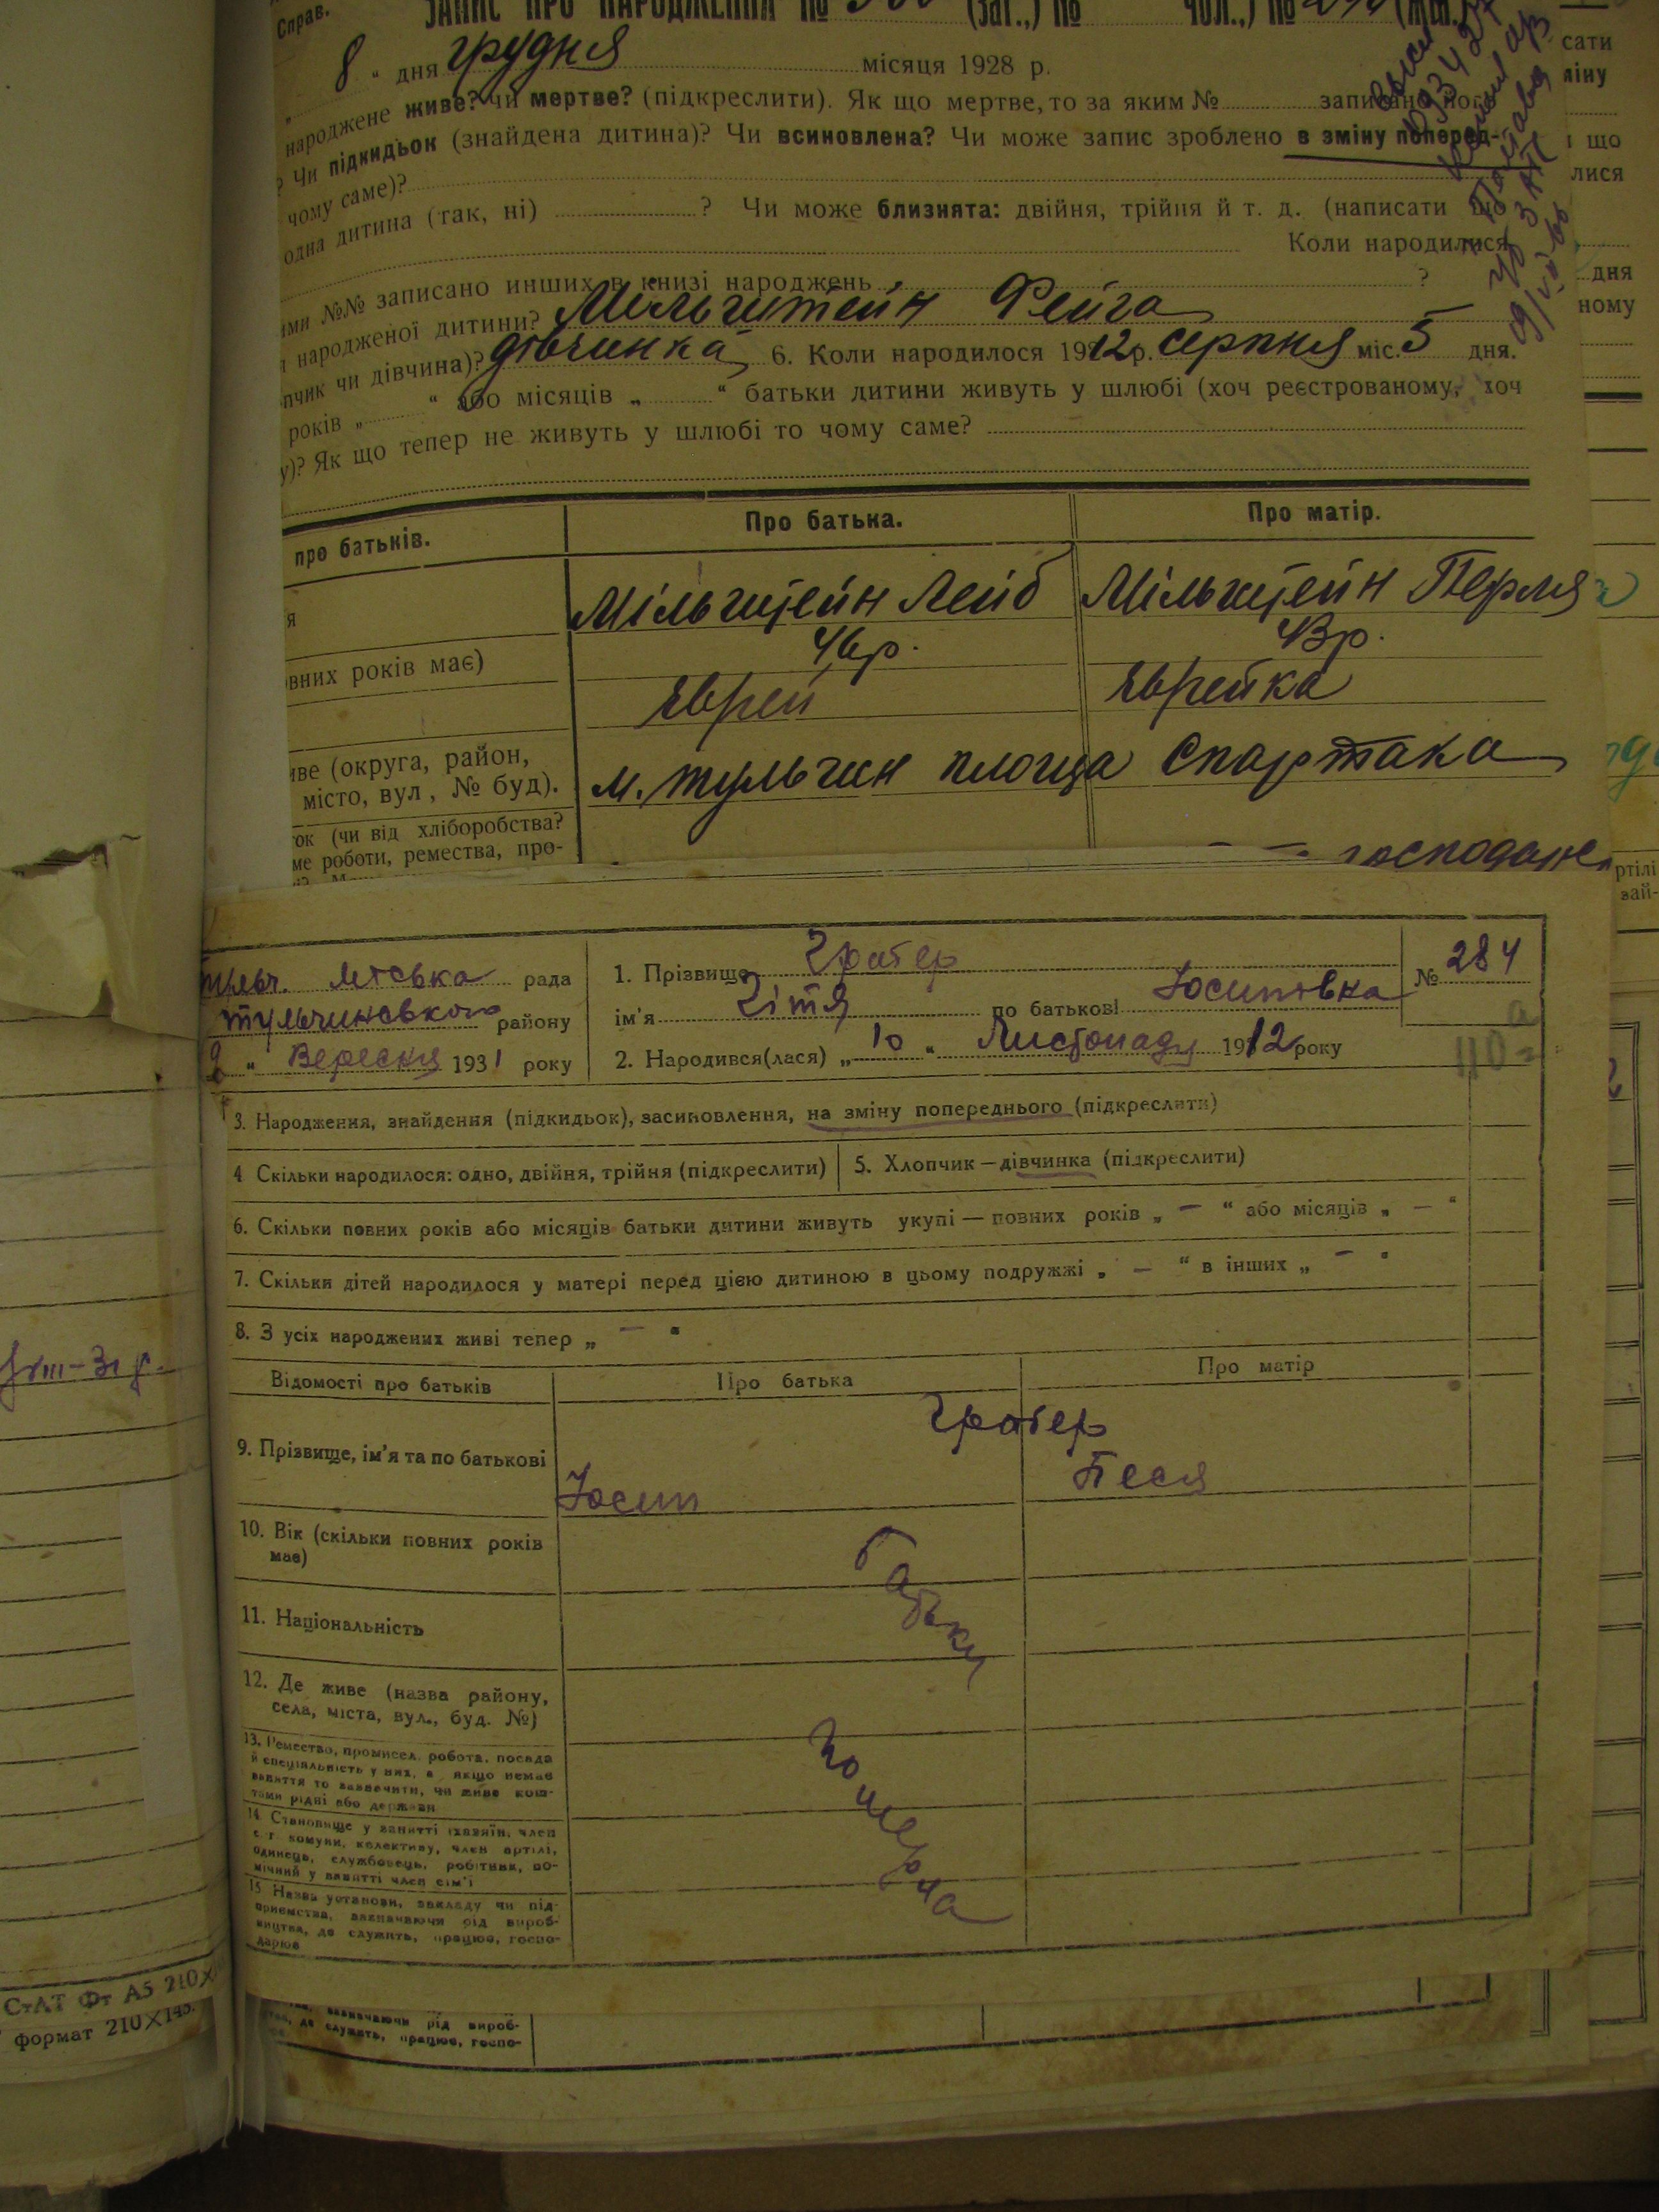 Справ. ЗАПИС ПРО НАРОДЖЕННЯ № (заг.,) № чол.,) № (жін.)
„ 8 “ дня грудня місяця 1928 р.
народжене живе? чи мертве? (підкреслити). Як що мертве, то за яким № записано його
? Чи підкидьок (знайдена дитина)? Чи всиновлена? Чи може запис зроблено в зміну поперед-
чому саме)?
одна дитина (так, ні) ? Чи може близнята: двійня, трійня й т. д. (написати що
Коли народилися
ими №№ записано инших в книзі народжень ?
народженої дитини? Мільштейн Фейга
пчик чи дівчина)? дівчинка 6. Коли народилося 1912 р. серпня міс. 5 дня.
років „ “ або місяців „ “ батьки дитини живуть у шлюбі (хоч реєстрованому, хоч
у)? Як що тепер не живуть у шлюбі то чому саме?
про батьків. Про батька. Про матір.
я Мільштейн Лейб Мільштейн Перля
вних років має) 46 р. 43 р.
Еврей Еврейка
ве (округа, район,
місто, вул, № буд). м. Тульчин площа Спартака
ок (чи від хліборобства?
ме роботи, ремества, про- — — господарс
Тульч. міська рада 1. Прізвище № 284
Тульчинського району ім'я по батькові Йосиповна
„ 2 “ Вересня 1931 року 2. Народився(лася) „ 10 “ Листопаду 1912 року
3. Народження, знайдення (підкидьок), засиновлення, на зміну попереднього (підкреслити)
4 Скільки народилося: одно, двійня, трійня (підкреслити) 5. Хлопчик — дівчинка (підкреслити)
6. Скільки повних років або місяців батьки дитини живуть укупі — повних років „ — “ або місяців „ — “
7. Скільки дітей народилося у матері перед цією дитиною в цьому подружжі „ — “ в інших „ — “
8. З усіх народжених живі тепер „ — “
Відомості про батьків Про батька Про матір
9. Прізвище, ім'я та по батькові
Йосип Песя
10. Вік (скільки повних років
має)
Батьки
11. Національність
12. Де живе (назва району,
села, міста, вул., буд. №)
померла
13. Ремество, промисел, робота, посада
й спеціяльність у них, а якщо немає
заняття то зазначити, чи живе кош-
тами рідні або держави
14. Становище у занятті (хазяїн, член
с.-г. комуни, колективу, член артілі,
одинець, службовець, робітник, по-
мічний у занятті член сім'ї
15 Назва установи, закладу чи під-
приємства, зазначаючи рід вироб-
ництва, де служить, працює, госпо-
дарює
зазначаючи рід вироб-
де служить, працює, госпо-
СтАТ Фт А5 210X
формат 210X145.
сати
міну
що
лися
дня
ному
ртілі
зай-